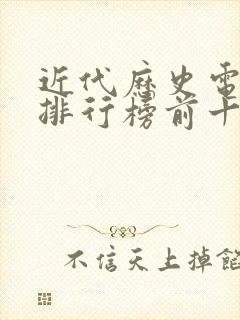 近代历史电
排行榜前十
不信天上掉馅